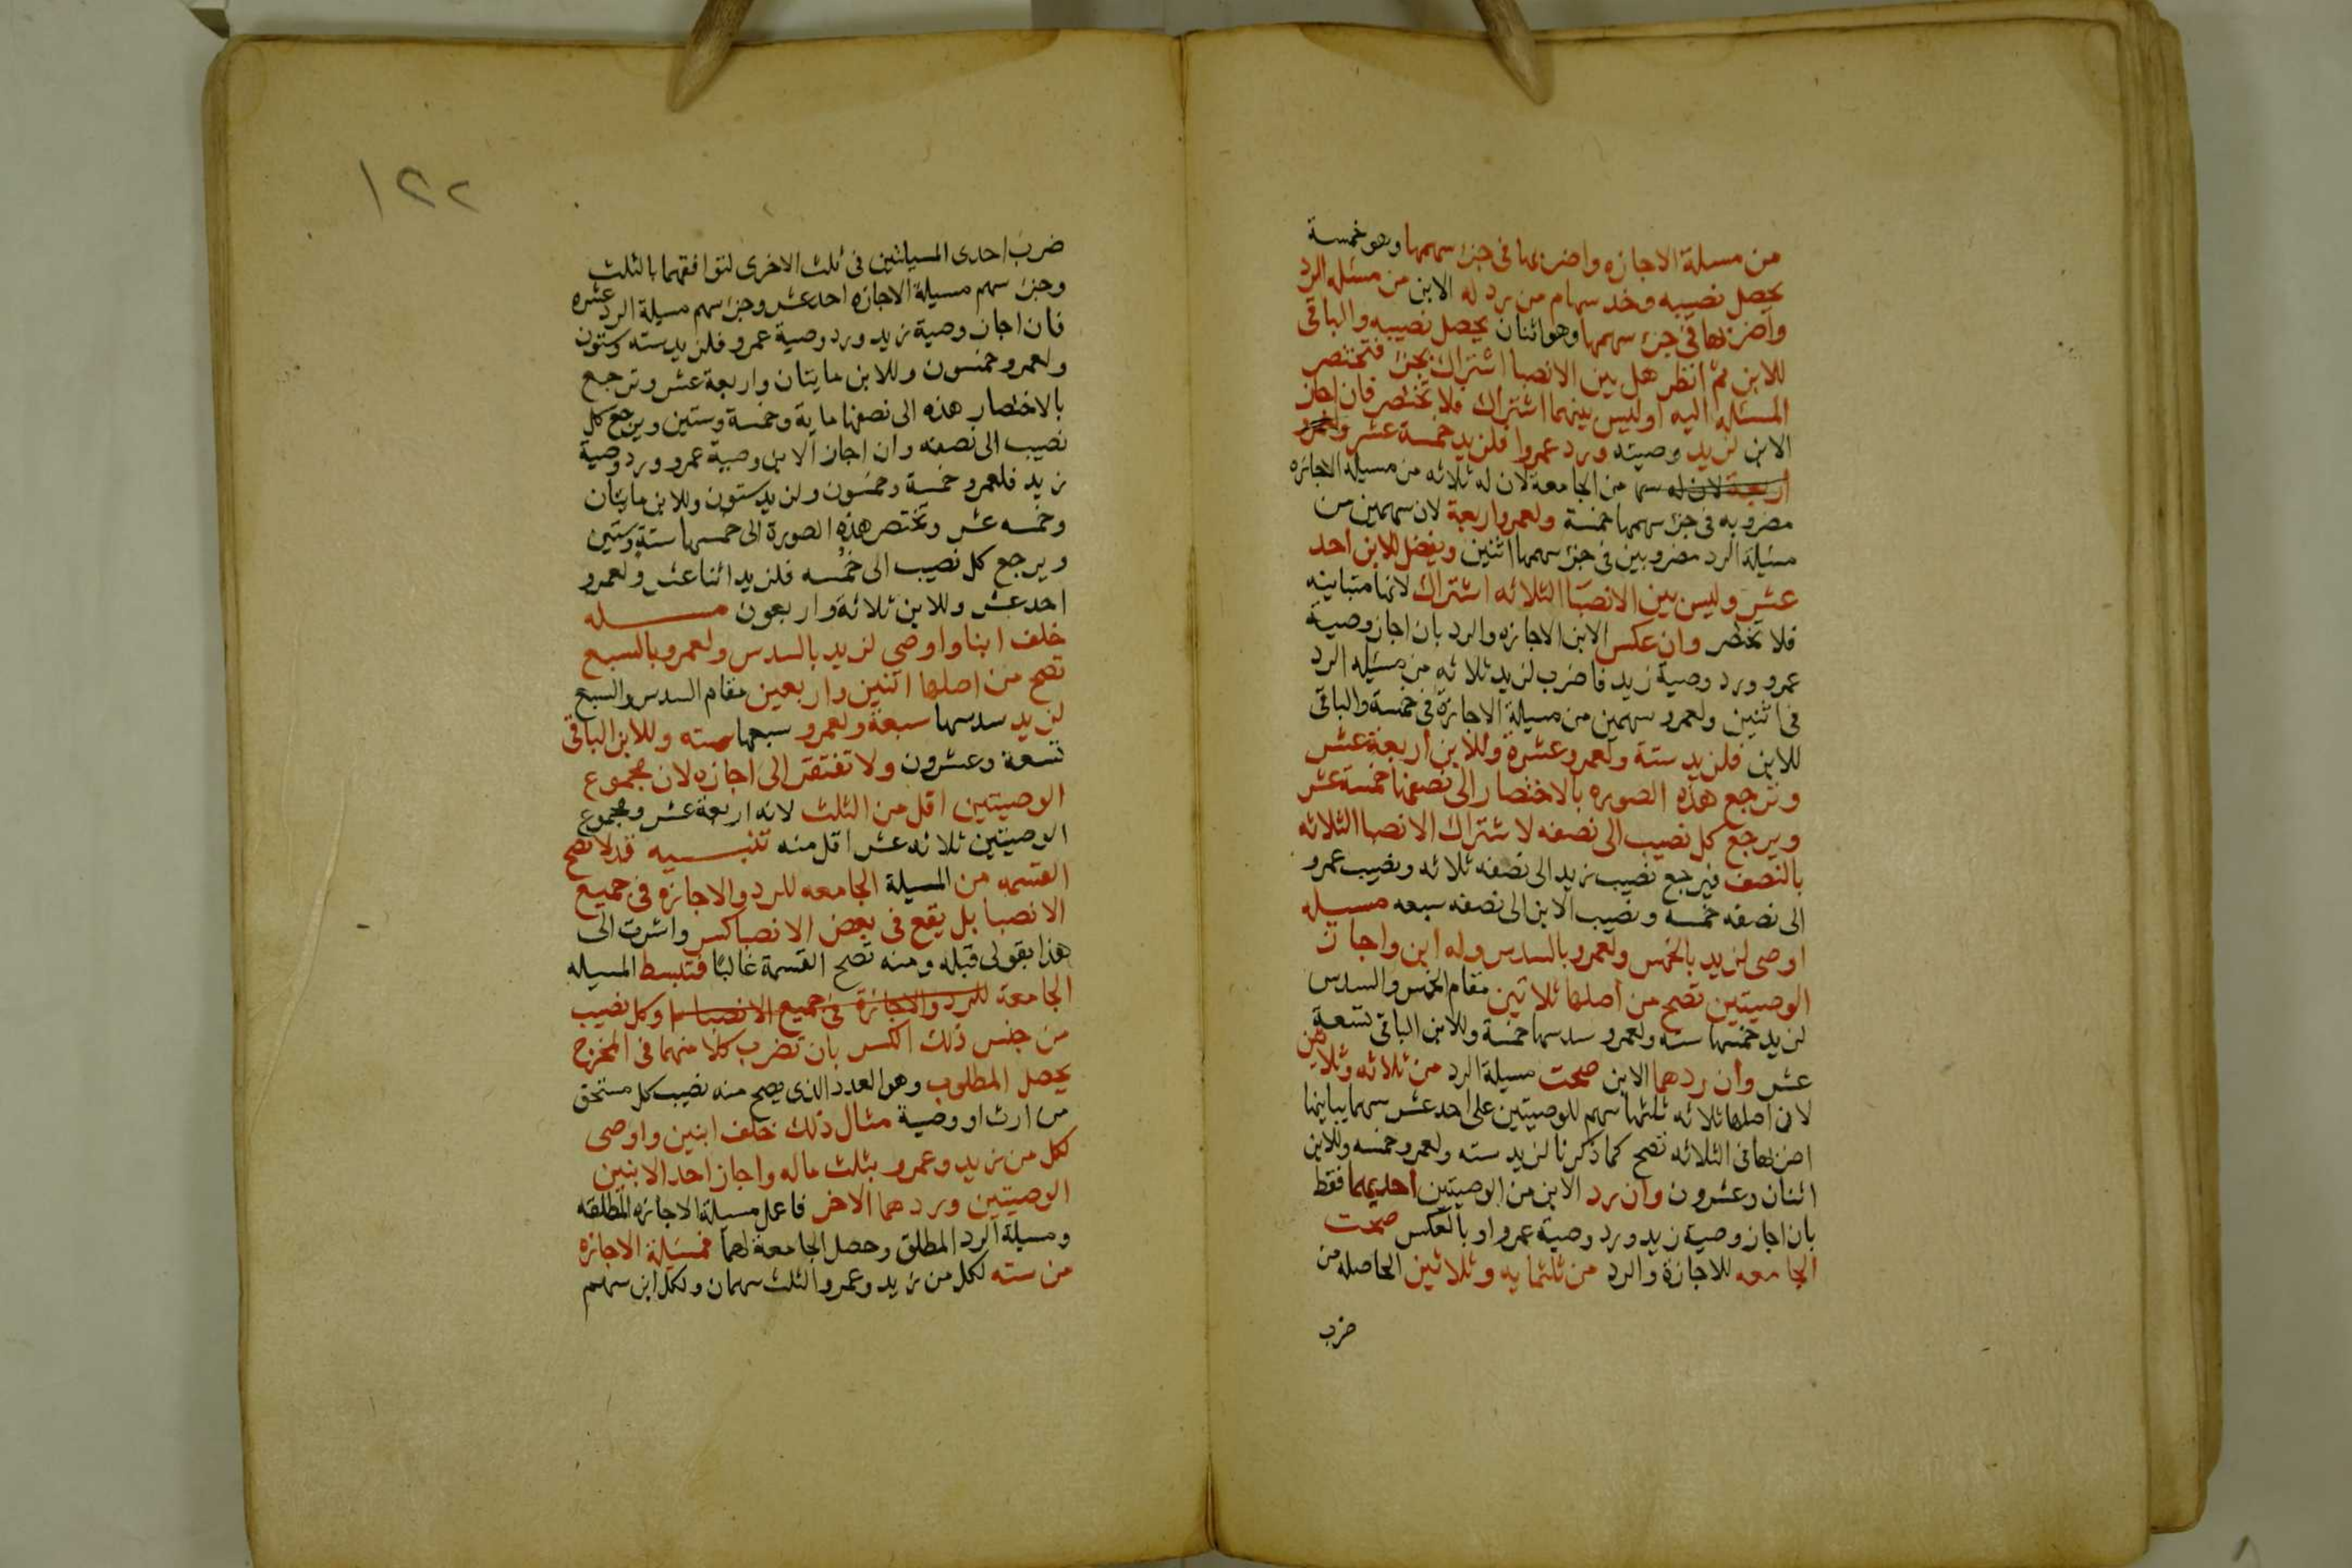 من مسيلة الاجازه واضربها فى جزء سهمها وهو خمسة
يحصل نصيبه وخذ سهام من رد له الابن من مسئله الرد
واضربها فى جزء سهمها وهو اثنان يحصل نصيبه والباقى
للابن ثم انظر هل بين الانصبا اشتراك بجزء فتختصر
المسئله اليه او ليس بينهما اشتراك فلا تختصر فان اجاز
الابن لزيد وصيته ورد عمروا فلزيد خمسة عشر ولعمرو
اربعة لان له سها من الجامعة لان له ثلاثه من مسيلة الاجازه
مضروبه فى جزء سهمها خمسة ولعمرو اربعة لان سهمين من
مسيلة الرد مضروبين فى جزء سهمها اثنين ويفضل للابن احد
عشر وليس بين الانصبا الثلاثه اشتراك لانها متباينه
فلا تختصر وان عكس الابن الاجازه والرد بان اجاز وصية
عمرو ورد وصية زيد فاضرب لزيد ثلاثه من مسيله الرد
فى اثنين ولعمرو سهمين من مسيلة الاجازة فى خمسة والباقى
للابن فلزيد ستة ولعمرو عشرة وللابن اربعة عشر
وترجع هذه الصوره بالاختصار الى نصفها خمسة عشر
ويرجع كل نصيب الى نصفه لاشتراك الانصبا الثلاثه
بالنصف فيرجع نصيب زيد الى نصفه ثلاثه ونصيب عمرو
الى نصفه خمسه ونصيب الابن الى نصفه سبعه مسيله
اوصى لزيد بالخمس ولعمرو بالسدس وله ابن واجاز
الوصيتين تصح من اصلها ثلاثين مقام الخمس والسدس
لزيد خمسها سته ولعمرو سدسها خمسة وللابن الباقى تسعة
عشر وان ردهما الابن صحت مسيلة الرد من ثلاثه وثلاثين
لان اصلها ثلاثه ثلثها سهم للوصيتين على احد عشر سهما يباينها
اضربها فى الثلاثه تصح كما ذكرنا لزيد سته ولعمرو خمسه وللابن
اثنان وعشرون وان رد الابن من الوصيتين احديهما فقط
بان اجاز وصية زيد ورد وصية عمرو او بالعكس صحت
الجامعه للاجازة والرد من ثلثمايه وثلاثين الحاصله من
ضرب
١٢٢
ضرب احدى المسيلتين فى ثلث الاخرى لتوافقهما بالثلث
وجزء سهم مسيلة الاجازه احد عشر وجزء سهم مسيلة الرد عشره
فان اجاز وصية زيد ورد وصية عمرو فلزيد سته وستون
ولعمرو خمسون وللابن مايتان واربعة عشر وترجع
بالاختصار هذه الى نصفها ماية وخمسة وستين ويرجع كل
نصيب الى نصفه وان اجاز الابن وصية عمرو ورد وصية
زيد فلعمرو خمسة وخمسون ولزيد ستون وللابن مايتان
وخمسه عشر وتختصر هذه الصورة الى خمسها ستة وستين
ويرجع كل نصيب الى خمسه فلزيد اثنا عشر ولعمرو
احد عشر وللابن ثلاثة واربعون مسله
خلف ابنا واوصى لزيد بالسدس ولعمرو بالسبع
تصح من اصلها اثنين واربعين مقام السدس والسبع
لزيد سدسها سبعة ولعمرو سبعها سته وللابن الباقى
تسعة وعشرون ولا تفتقر الى اجازه لان مجموع
الوصيتين اقل من الثلث لانه اربعة عشر ومجموع
الوصيتين ثلاثه عشر اقل منه تنبيه قد لا تصح
القسمه من المسيلة الجامعه للرد والاجازه فى جميع
الانصبا بل يقع فى بعض الانصبا كسر واشرت الى
هذا بقولى قبله ومنه تصح القسمة غالبًا فتبسط المسيله
الجامعة للرد والاجازة فى جميع الانصبا وكل نصيب
من جنس ذلك الكسر بان تضرب كلا منهما فى المخرج
يحصل المطلوب وهو العدد الذى يصح منه نصيب كل مستحق
من ارث او وصية مثال ذلك خلف ابنين واوصى
لكل من زيد وعمرو بثلث ماله واجاز احد الابنين
الوصيتين وردهما الاخر فاعمل مسيلة الاجازه المطلقه
ومسيلة الرد المطلق وحصل الجامعة لهما فمسيلة الاجازه
من سته لكل من زيد وعمرو الثلث سهمان ولكل ابن سهم